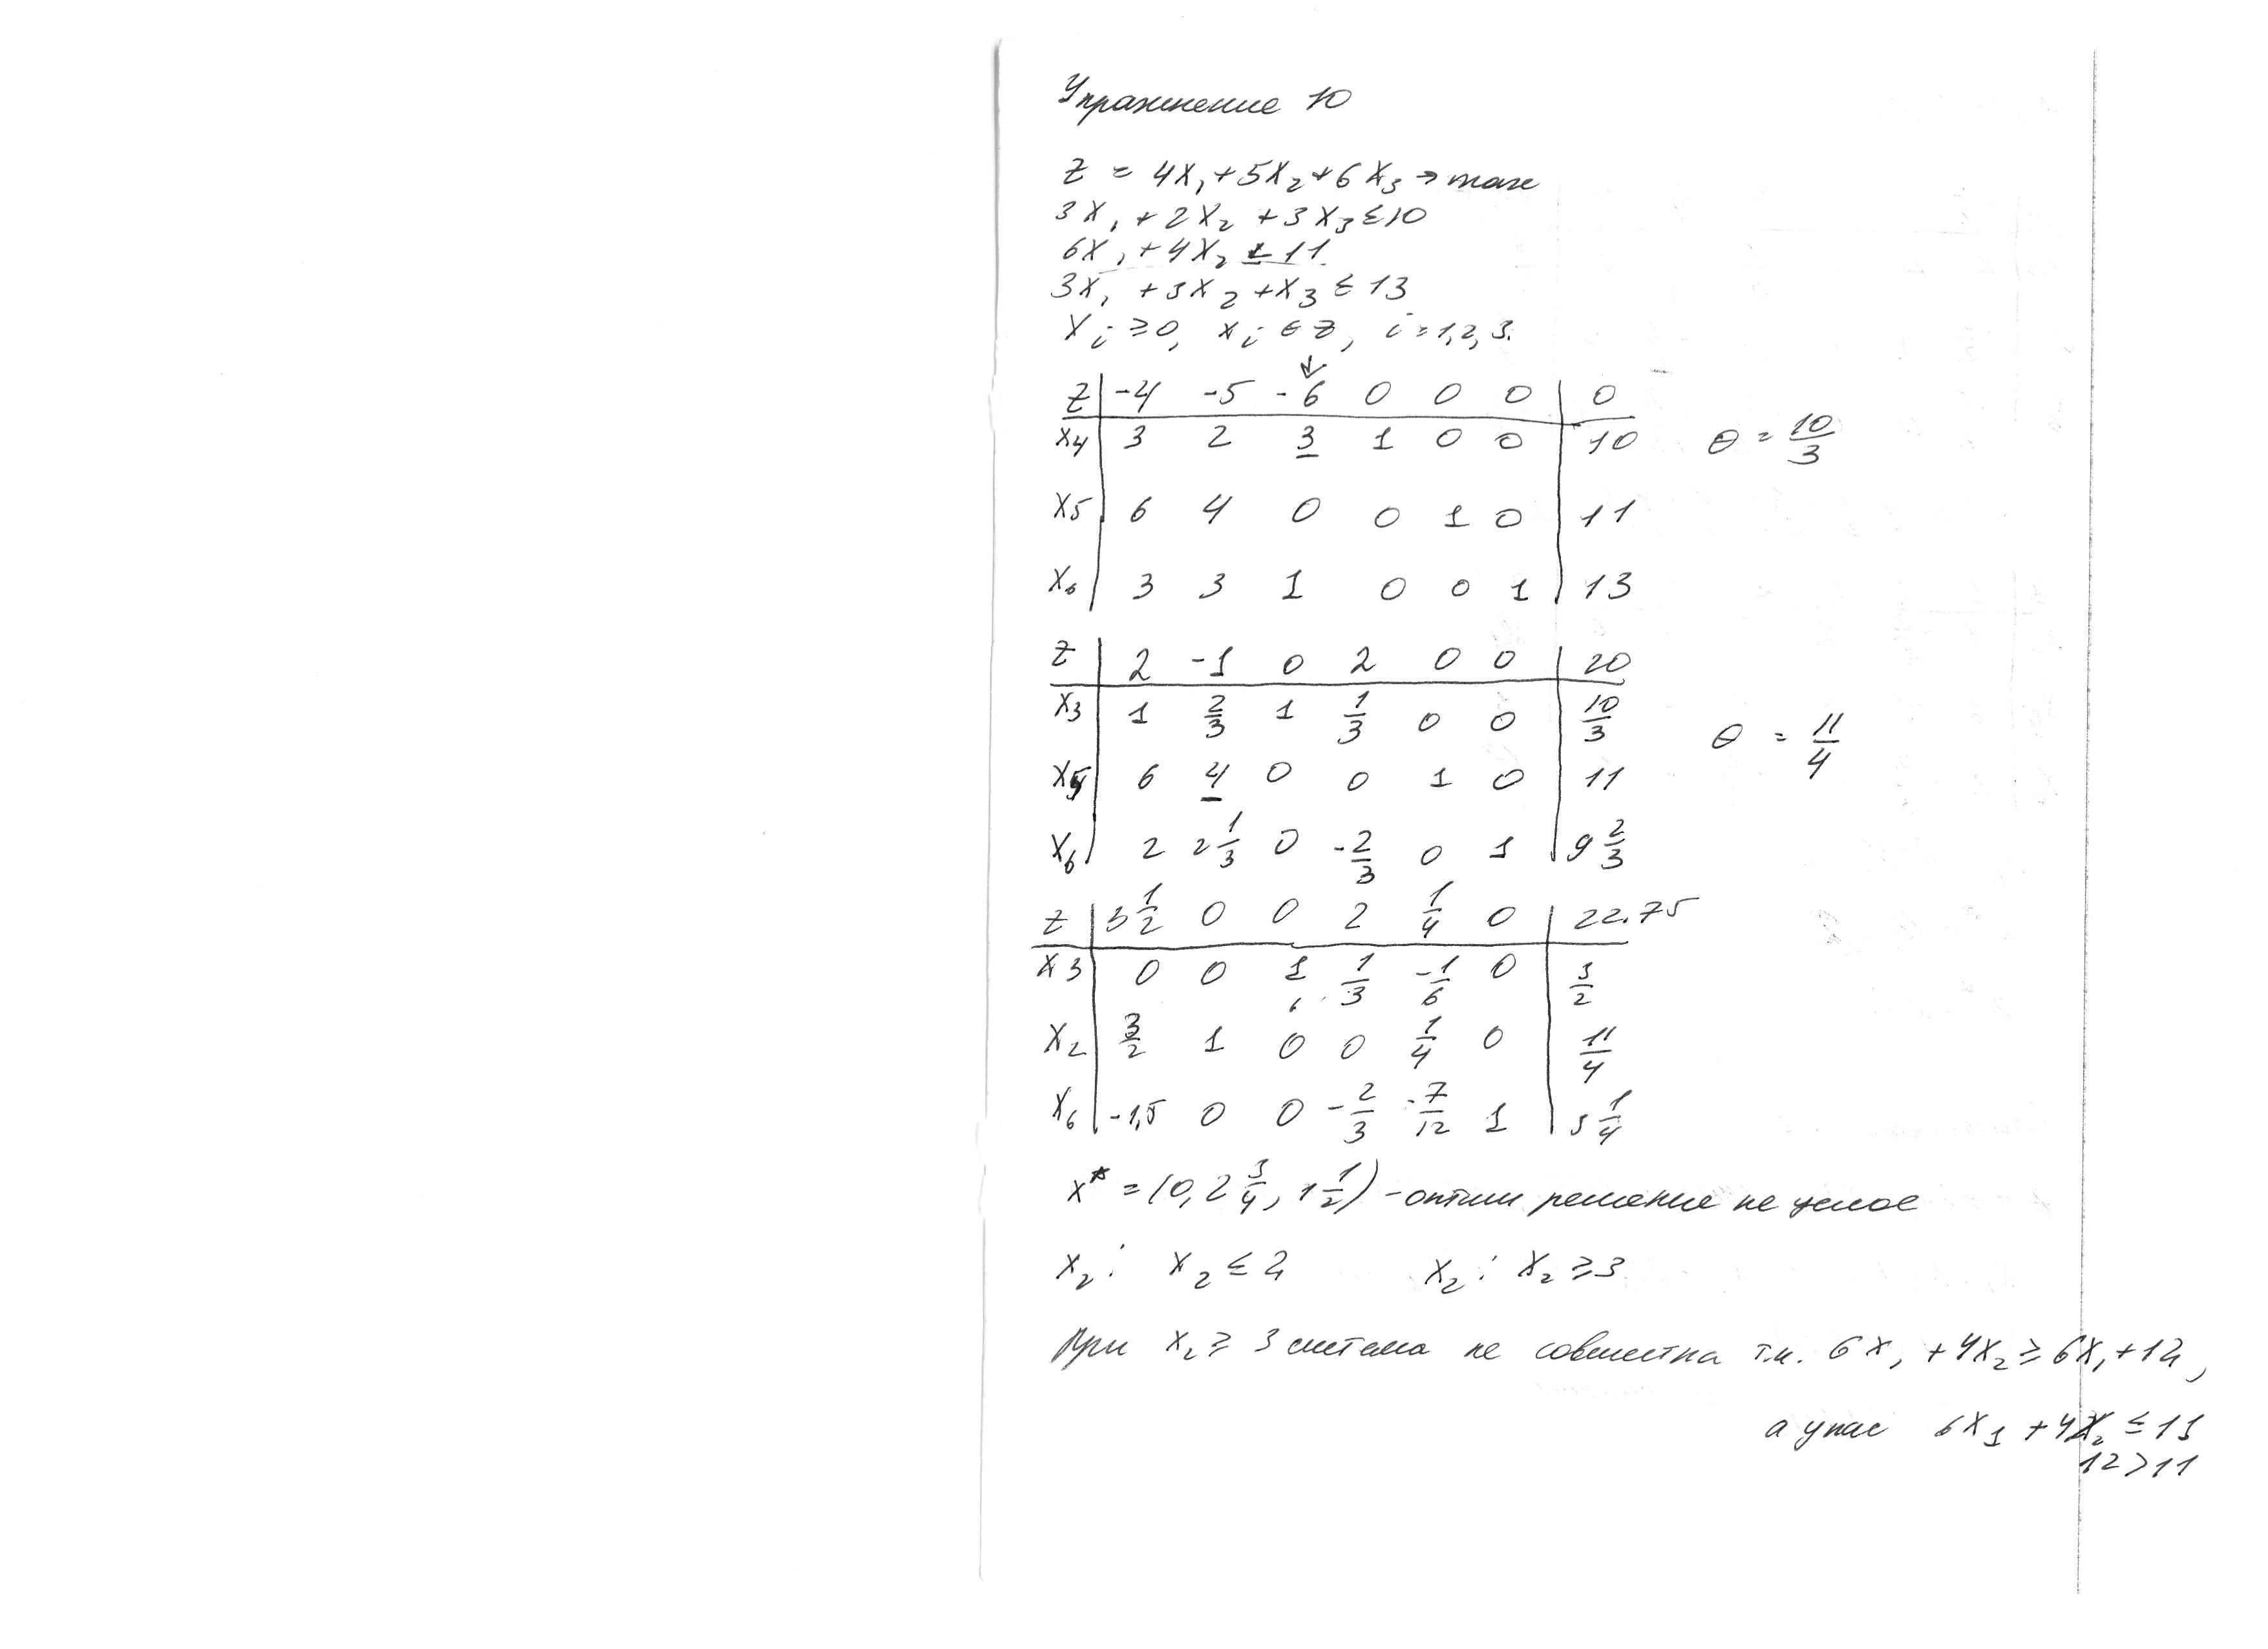 Упражнение 10
Z = 4x₁ + 5x₂ + 6x₃ → max
3x₁ + 2x₂ + 3x₃ ≤ 10
6x₁ + 4x₂ ≤ 11
3x₁ + 3x₂ + x₃ ≤ 13
xᵢ ≥ 0, xᵢ ∈ Z, i = 1,2,3.
↓
Z | -4 -5 -6 0 0 0 | 0
x₄ | 3 2 3 1 0 0 | 10 θ = 10/3
x₅ | 6 4 0 0 1 0 | 11
x₆ | 3 3 1 0 0 1 | 13
Z | 2 -1 0 2 0 0 | 20
x₃ | 1 2/3 1 1/3 0 0 | 10/3 θ = 11/4
x₅ | 6 4 0 0 1 0 | 11
x₆ | 2 2 1/3 0 -2/3 0 1 | 9 2/3
Z | 3 1/2 0 0 2 1/4 0 | 22.75
x₃ | 0 0 1 1/3 -1/6 0 | 3/2
x₂ | 3/2 1 0 0 1/4 0 | 11/4
x₆ | -1,5 0 0 -2/3 -7/12 1 | 3 1/4
x* = (0, 2 3/4, 1 1/2) - оптим решение не целое
x₂: x₂ ≤ 2 x₂: x₂ ≥ 3
При x₂ ≥ 3 система не совместна т.к. 6x₁ + 4x₂ ≥ 6x₁ + 12,
а у нас 6x₁ + 4x₂ ≤ 11
12 > 11